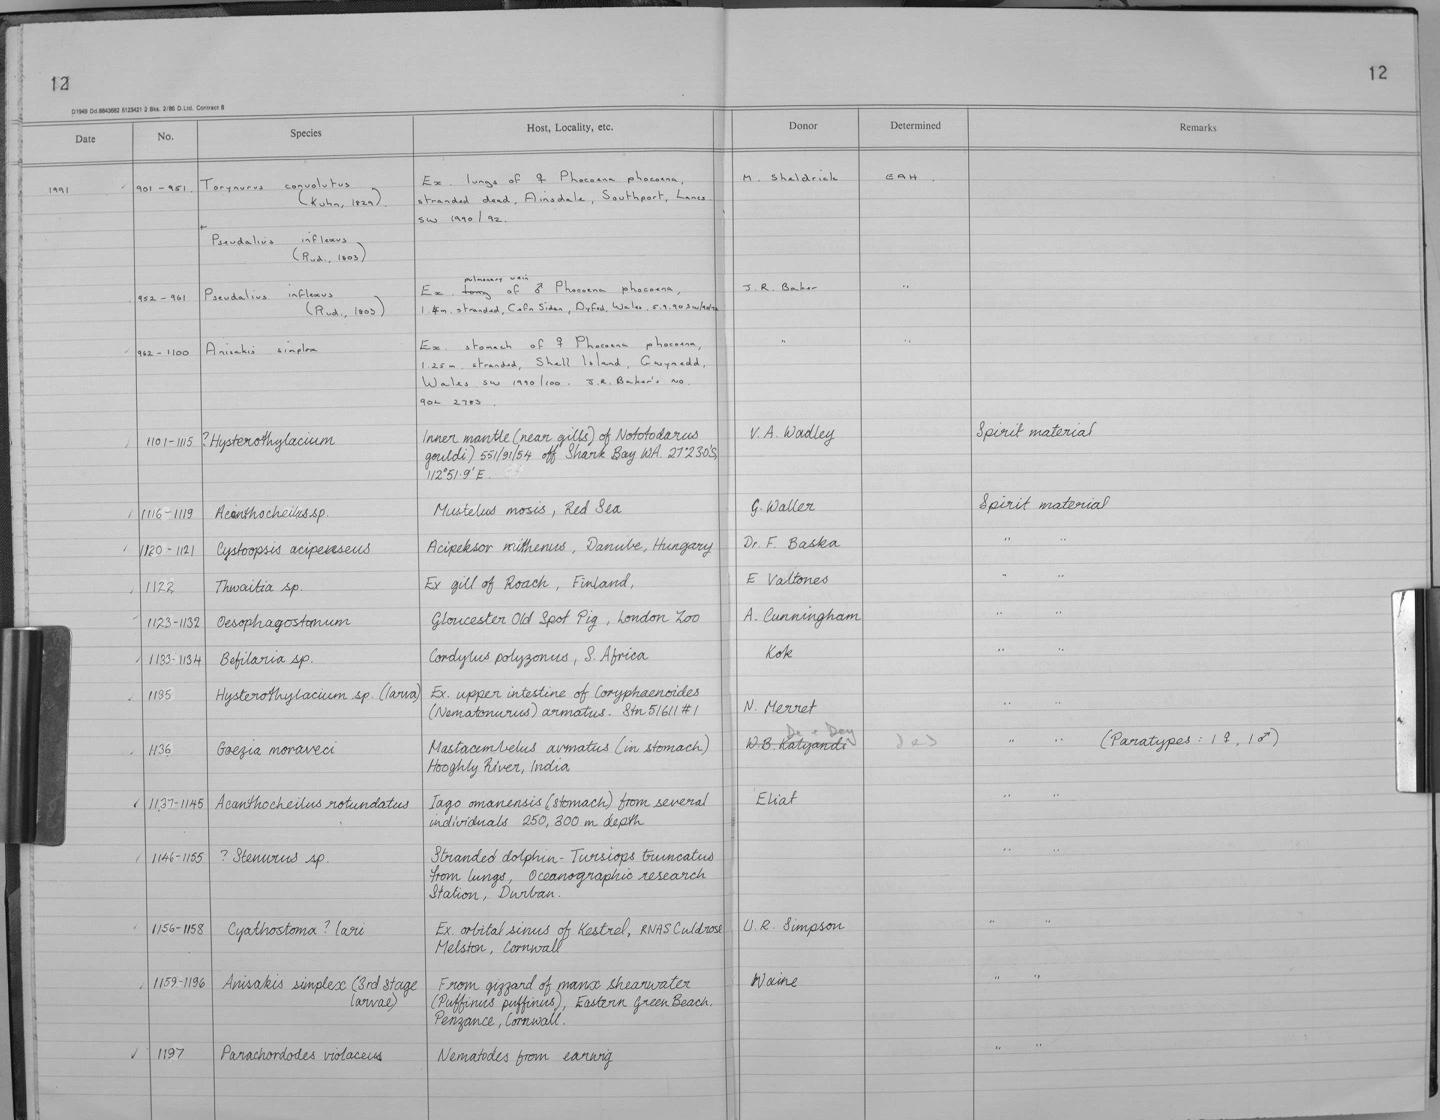 12
12
D1949 Dd.8843682 5123421 2 Bks. 2/86 D.Ltd. Contract 8
Date No. Species Host, Locality, etc. Donor Determined Remarks
1991 901-951. Torynurus convolutus Ex. lungs of ♀ Phocoena phocoena, M. Sheldrick EAH.
(Kuhn, 1829) stranded dead, Ainsdale, Southport, Lancs
SW 1990/92.
+
Pseudalius inflexus
(Rud., 1803)
pulmonary vein
952-961 Pseudalius inflexus Ex. of ♂ Phocoena phocoena, J.R. Baker "
(Rud., 1803) stranded, Cefn Sidan, Dyfed, Wales. 5.9.90
962-1100 Anisakis simplex Ex. stomach of ♀ Phocoena phocoena, " "
1.25m. stranded, Shell Island, Gwynedd,
Wales SW 1990/100. J.R. Baker's no.
902 2783
1101-1115 ?Hysterothylacium Inner mantle (near gills) of Nototodarus V.A. Wadley Spirit material
gouldi) 551/91/54 off Shark Bay WA. 27°23.0'S,
112°51.9'E.
1116-1119 Acanthocheilus sp. Mustelus mosis, Red Sea G. Waller Spirit material
1120-1121 Cystoopsis acipenseus Danube, Hungary Dr. F. Baska " "
1122 Thwaitia sp. Ex gill of Roach, Finland, E Valtones " "
1123-1132 Oesophagostomum Gloucester Old Spot Pig, London Zoo A. Cunningham " "
1133-1134 Befilaria sp. Cordylus polyzonus, S. Africa Kok " "
1135 Hysterothylacium sp. (larva) Ex. upper intestine of Coryphaenoides
(Nematonurus) armatus. Stn 51611#1 N. Merret " "
De + Dey
1136 Goezia moraveci Mastacembelus armatus (in stomach) W.B. Katyandi " " (Paratypes: 1♀, 1♂)
Hooghly River, India
1137-1145 Acanthocheilus rotundatus Iago omanensis (stomach) from several Eliat " "
individuals 250, 300 m depth
1146-1155 ? Stenurus sp. Stranded dolphin - Tursiops truncatus " "
from lungs, Oceanographic research
Station, Durban.
1156-1158 Cyathostoma ? lari Ex. orbital sinus of Kestrel, RNAS Culdrose U.R. Simpson " "
Melston, Cornwall
1159-1196 Anisakis simplex (3rd stage From gizzard of manx shearwater Waine " "
larvae) (Puffinus puffinus), Eastern Green Beach.
Penzance, Cornwall.
1197 Parachordodes violaceus Nematodes from earwig " "